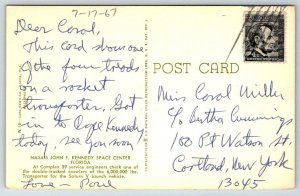 7-17-67
Dear Coral,
This card shows one
of the four treads
on a rocket
transporter. Got
in to Cape Kennedy
today, see you soon,
Love - Paul
NASA'S JOHN F. KENNEDY SPACE CENTER
FLORIDA
At Complex 39 service engineers check one of
the double-tracked crawlers of the 6,000,000 lbs.
Transporter for the Saturn V launch vehicle.
POST CARD
Miss Coral Miller
c/o Bertha Cummings
100 Pt Watson St.
Cortland, New York
13045